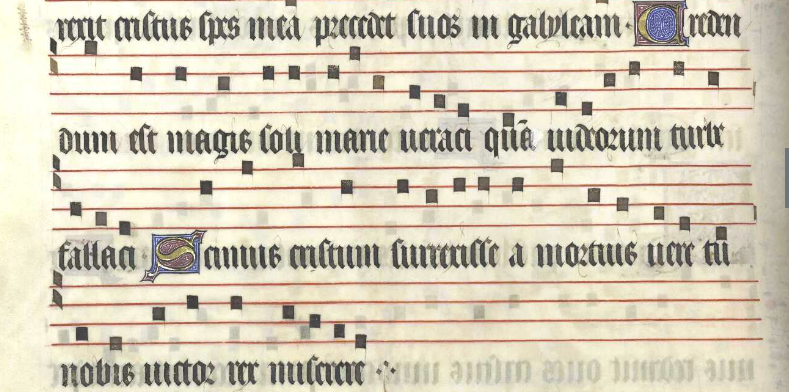 rexit cristus spes mea precedet suos in galyleam. Creden
dum est magis soli marie ueraci quā iudeorum turbe
fallaci Scimus cristum surrexisse a mortuis uere tū
nobis uictor rex miserere